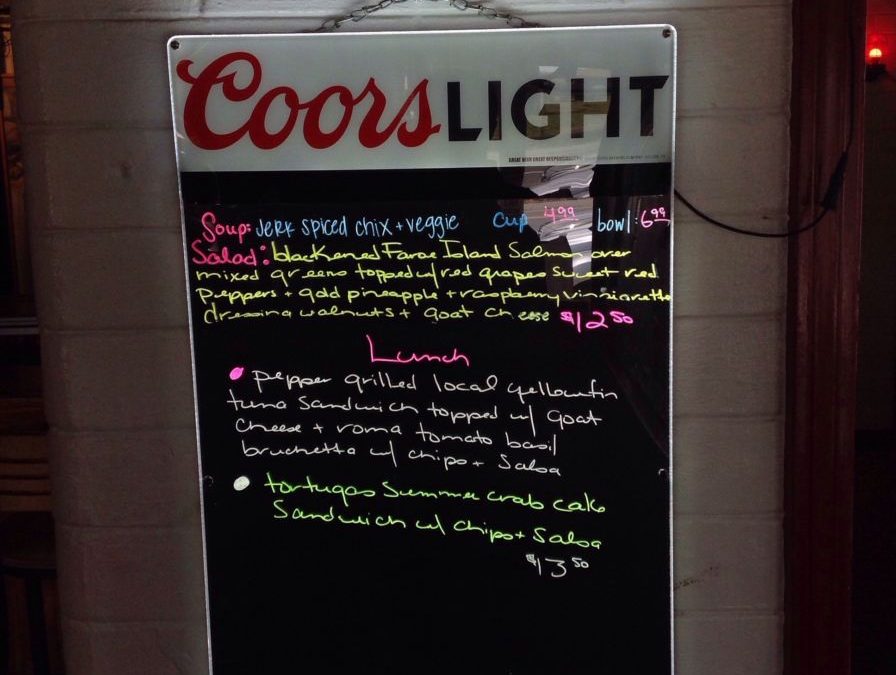 Coors LIGHT
GREAT BEER GREAT RESPONSIBILITY
Soup: Jerk spiced chix + veggie cup 4.99 bowl: 6.99
Salad: blackened Faroe Island Salmon over
mixed greens topped w/ red grapes sweet red
peppers + gold pineapple + raspberry vinniarette
dressing walnuts + goat cheese $12.50
Lunch
• pepper grilled local yellowfin
tuna sandwich topped w/ goat
cheese + roma tomato basil
bruchetta w/ chips + salsa
• tortugas summer crab cake
Sandwich w/ chips + Salsa
$13.50